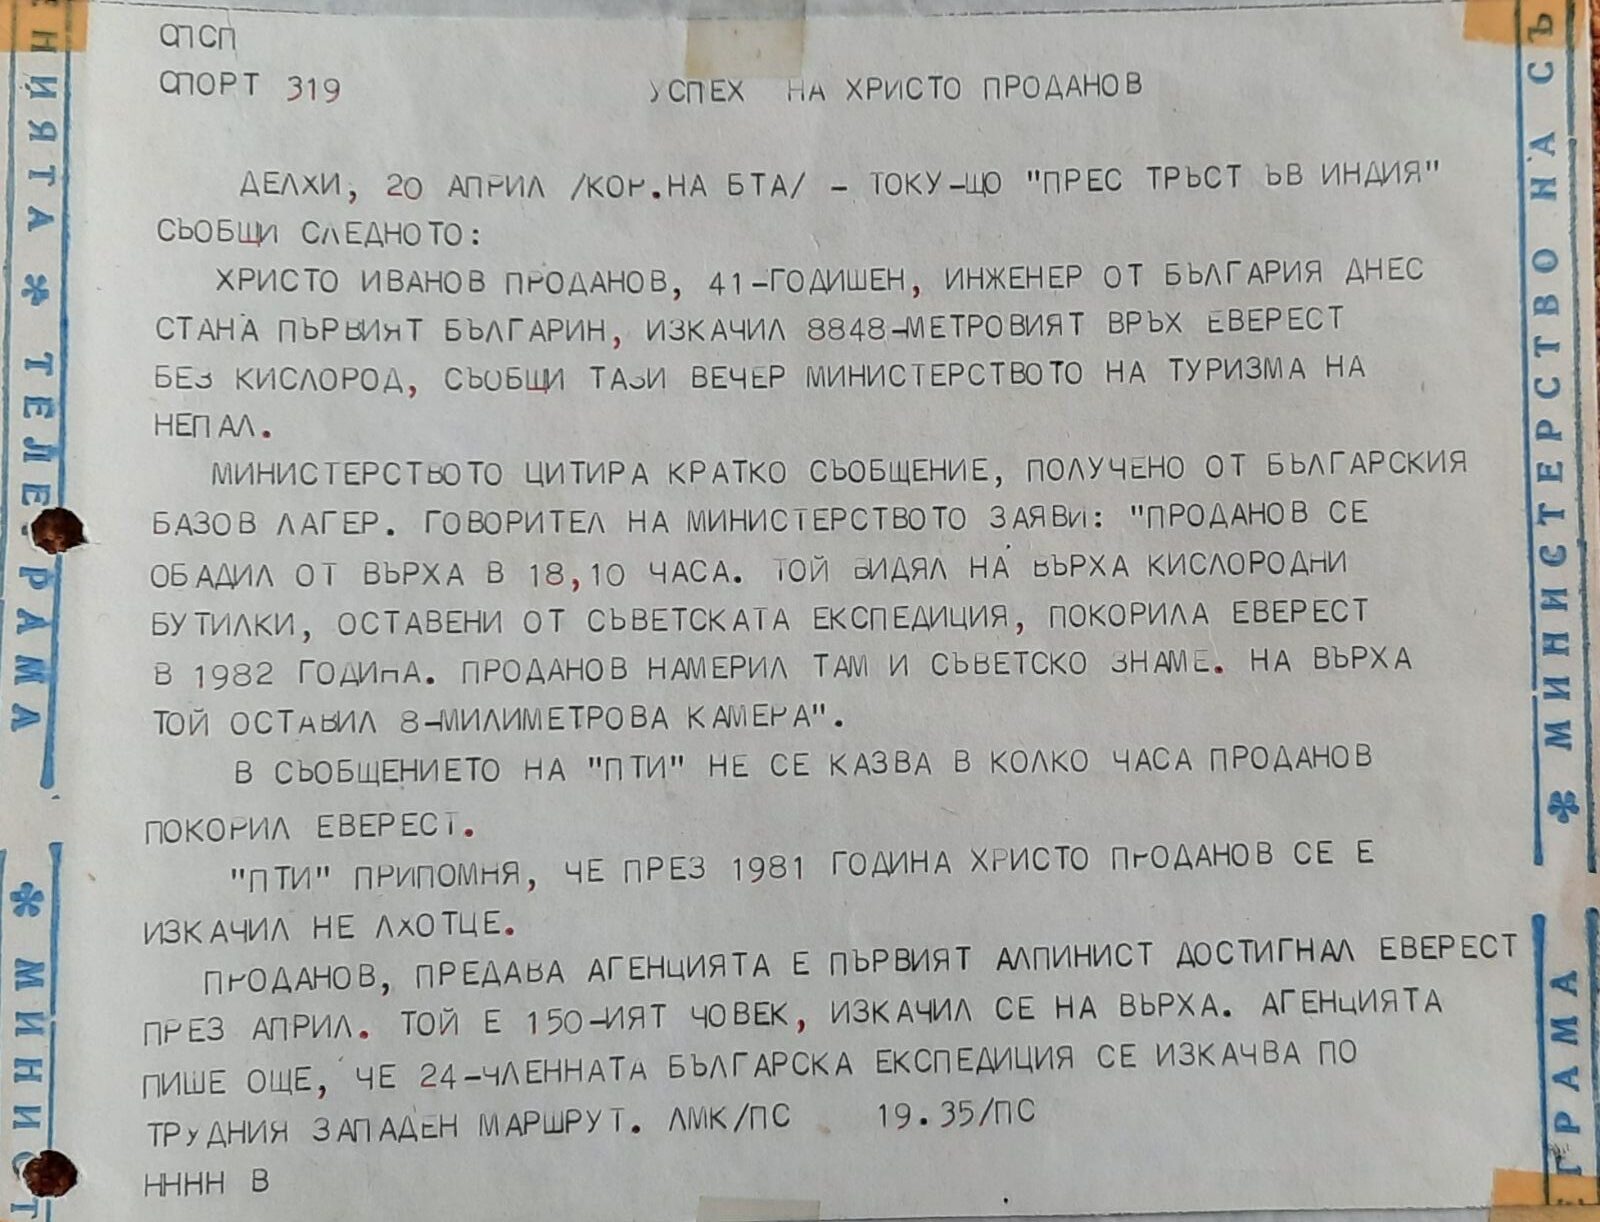 СПСП
СПОРТ 319 УСПЕХ НА ХРИСТО ПРОДАНОВ
ДЕЛХИ, 20 АПРИЛ /КОР.НА БТА/ - ТОКУ-ЩО "ПРЕС ТРЪСТ ЪВ ИНДИЯ"
СЪОБЩИ СЛЕДНОТО:
ХРИСТО ИВАНОВ ПРОДАНОВ, 41-ГОДИШЕН, ИНЖЕНЕР ОТ БЪЛГАРИЯ ДНЕС
СТАНА ПЪРВИЯТ БЪЛГАРИН, ИЗКАЧИЛ 8848-МЕТРОВИЯТ ВРЪХ ЕВЕРЕСТ
БЕЗ КИСЛОРОД, СЪОБЩИ ТАЗИ ВЕЧЕР МИНИСТЕРСТВОТО НА ТУРИЗМА НА
НЕПАЛ.
МИНИСТЕРСТВОТО ЦИТИРА КРАТКО СЪОБЩЕНИЕ, ПОЛУЧЕНО ОТ БЪЛГАРСКИЯ
БАЗОВ ЛАГЕР. ГОВОРИТЕЛ НА МИНИСТЕРСТВОТО ЗАЯВИ: "ПРОДАНОВ СЕ
ОБАДИЛ ОТ ВЪРХА В 18,10 ЧАСА. ТОЙ ВИДЯЛ НА ВЪРХА КИСЛОРОДНИ
БУТИЛКИ, ОСТАВЕНИ ОТ СЪВЕТСКАТА ЕКСПЕДИЦИЯ, ПОКОРИЛА ЕВЕРЕСТ
В 1982 ГОДИНА. ПРОДАНОВ НАМЕРИЛ ТАМ И СЪВЕТСКО ЗНАМЕ. НА ВЪРХА
ТОЙ ОСТАВИЛ 8-МИЛИМЕТРОВА КАМЕРА".
В СЪОБЩЕНИЕТО НА "ПТИ" НЕ СЕ КАЗВА В КОЛКО ЧАСА ПРОДАНОВ
ПОКОРИЛ ЕВЕРЕСТ.
"ПТИ" ПРИПОМНЯ, ЧЕ ПРЕЗ 1981 ГОДИНА ХРИСТО ПРОДАНОВ СЕ Е
ИЗКАЧИЛ НЕ ЛХОТЦЕ.
ПРОДАНОВ, ПРЕДАВА АГЕНЦИЯТА Е ПЪРВИЯТ АЛПИНИСТ ДОСТИГНАЛ ЕВЕРЕСТ
ПРЕЗ АПРИЛ. ТОЙ Е 150-ИЯТ ЧОВЕК, ИЗКАЧИЛ СЕ НА ВЪРХА. АГЕНЦИЯТА
ПИШЕ ОЩЕ, ЧЕ 24-ЧЛЕННАТА БЪЛГАРСКА ЕКСПЕДИЦИЯ СЕ ИЗКАЧВА ПО
ТРУДНИЯ ЗАПАДЕН МАРШРУТ. ЛМК/ПС 19.35/ПС
НННН В
НИЯТА * ТЕЛЕГРАМА
* МИНИСТ
* МИНИСТЕРСТВО НА СЪ
ЕГРАМА